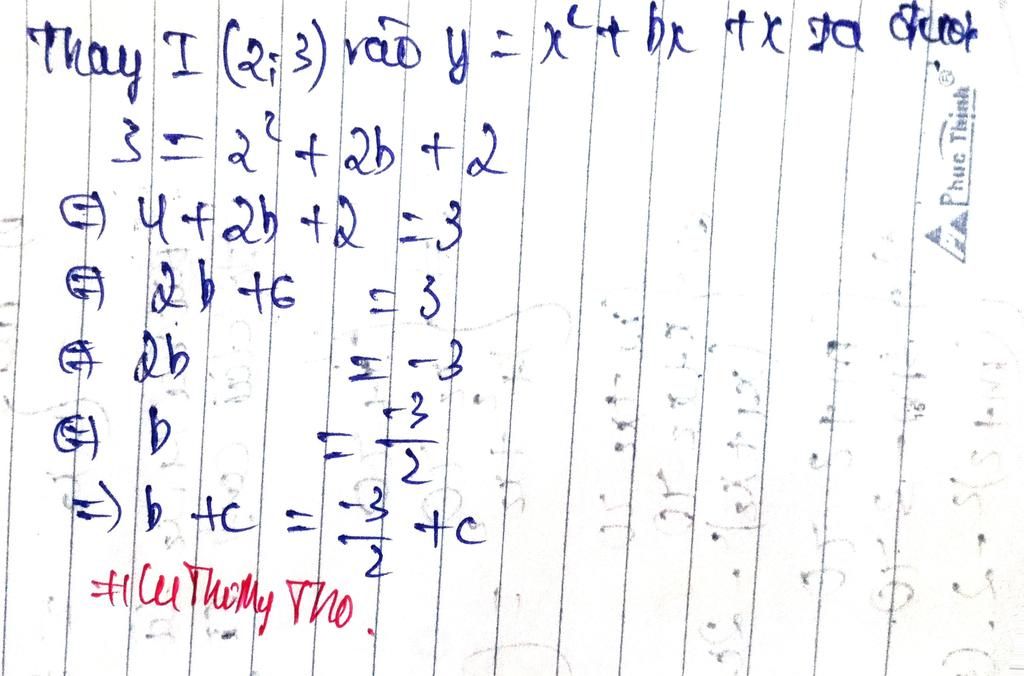 Thay I (2; 3) vào y = x² + bx + x ta được
3 = 2² + 2b + 2
⇔ 4 + 2b + 2 = 3
⇔ 2b + 6 = 3
⇔ 2b = -3
⇔ b = -3/2
⇒ b + c = -3/2 + c
Phuc Thinh®